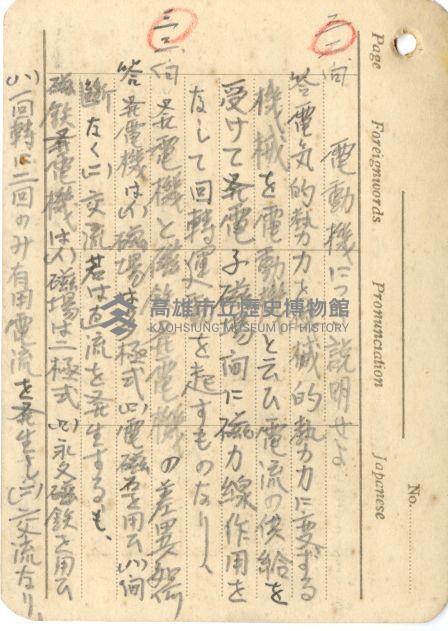 No.
Page Foreignwords Pronunciation Japanese
二一、問 電動機につ 説明せよ
答 電気的勢力を機械的勢力に変ずる
機械を電動機と云ひ電流の供給を
受けて発電子磁場間に磁力線作用を
なして回転運 を起すものなり、
三二、問 発電機と磁鉄発電機の差異如何
答 発電機は(イ)磁場は多極式(ロ)電磁石を用ひ(ハ)間
断なく(ニ)交流若は直流を発生するも、
磁鉄発電機は(イ)磁場は二極式(ロ)永久磁鉄を用ひ
(ハ)一回転に二回のみ有用電流を発生し(ニ)交流なり
高雄市立歷史博物館
KAOHSIUNG MUSEUM OF HISTORY